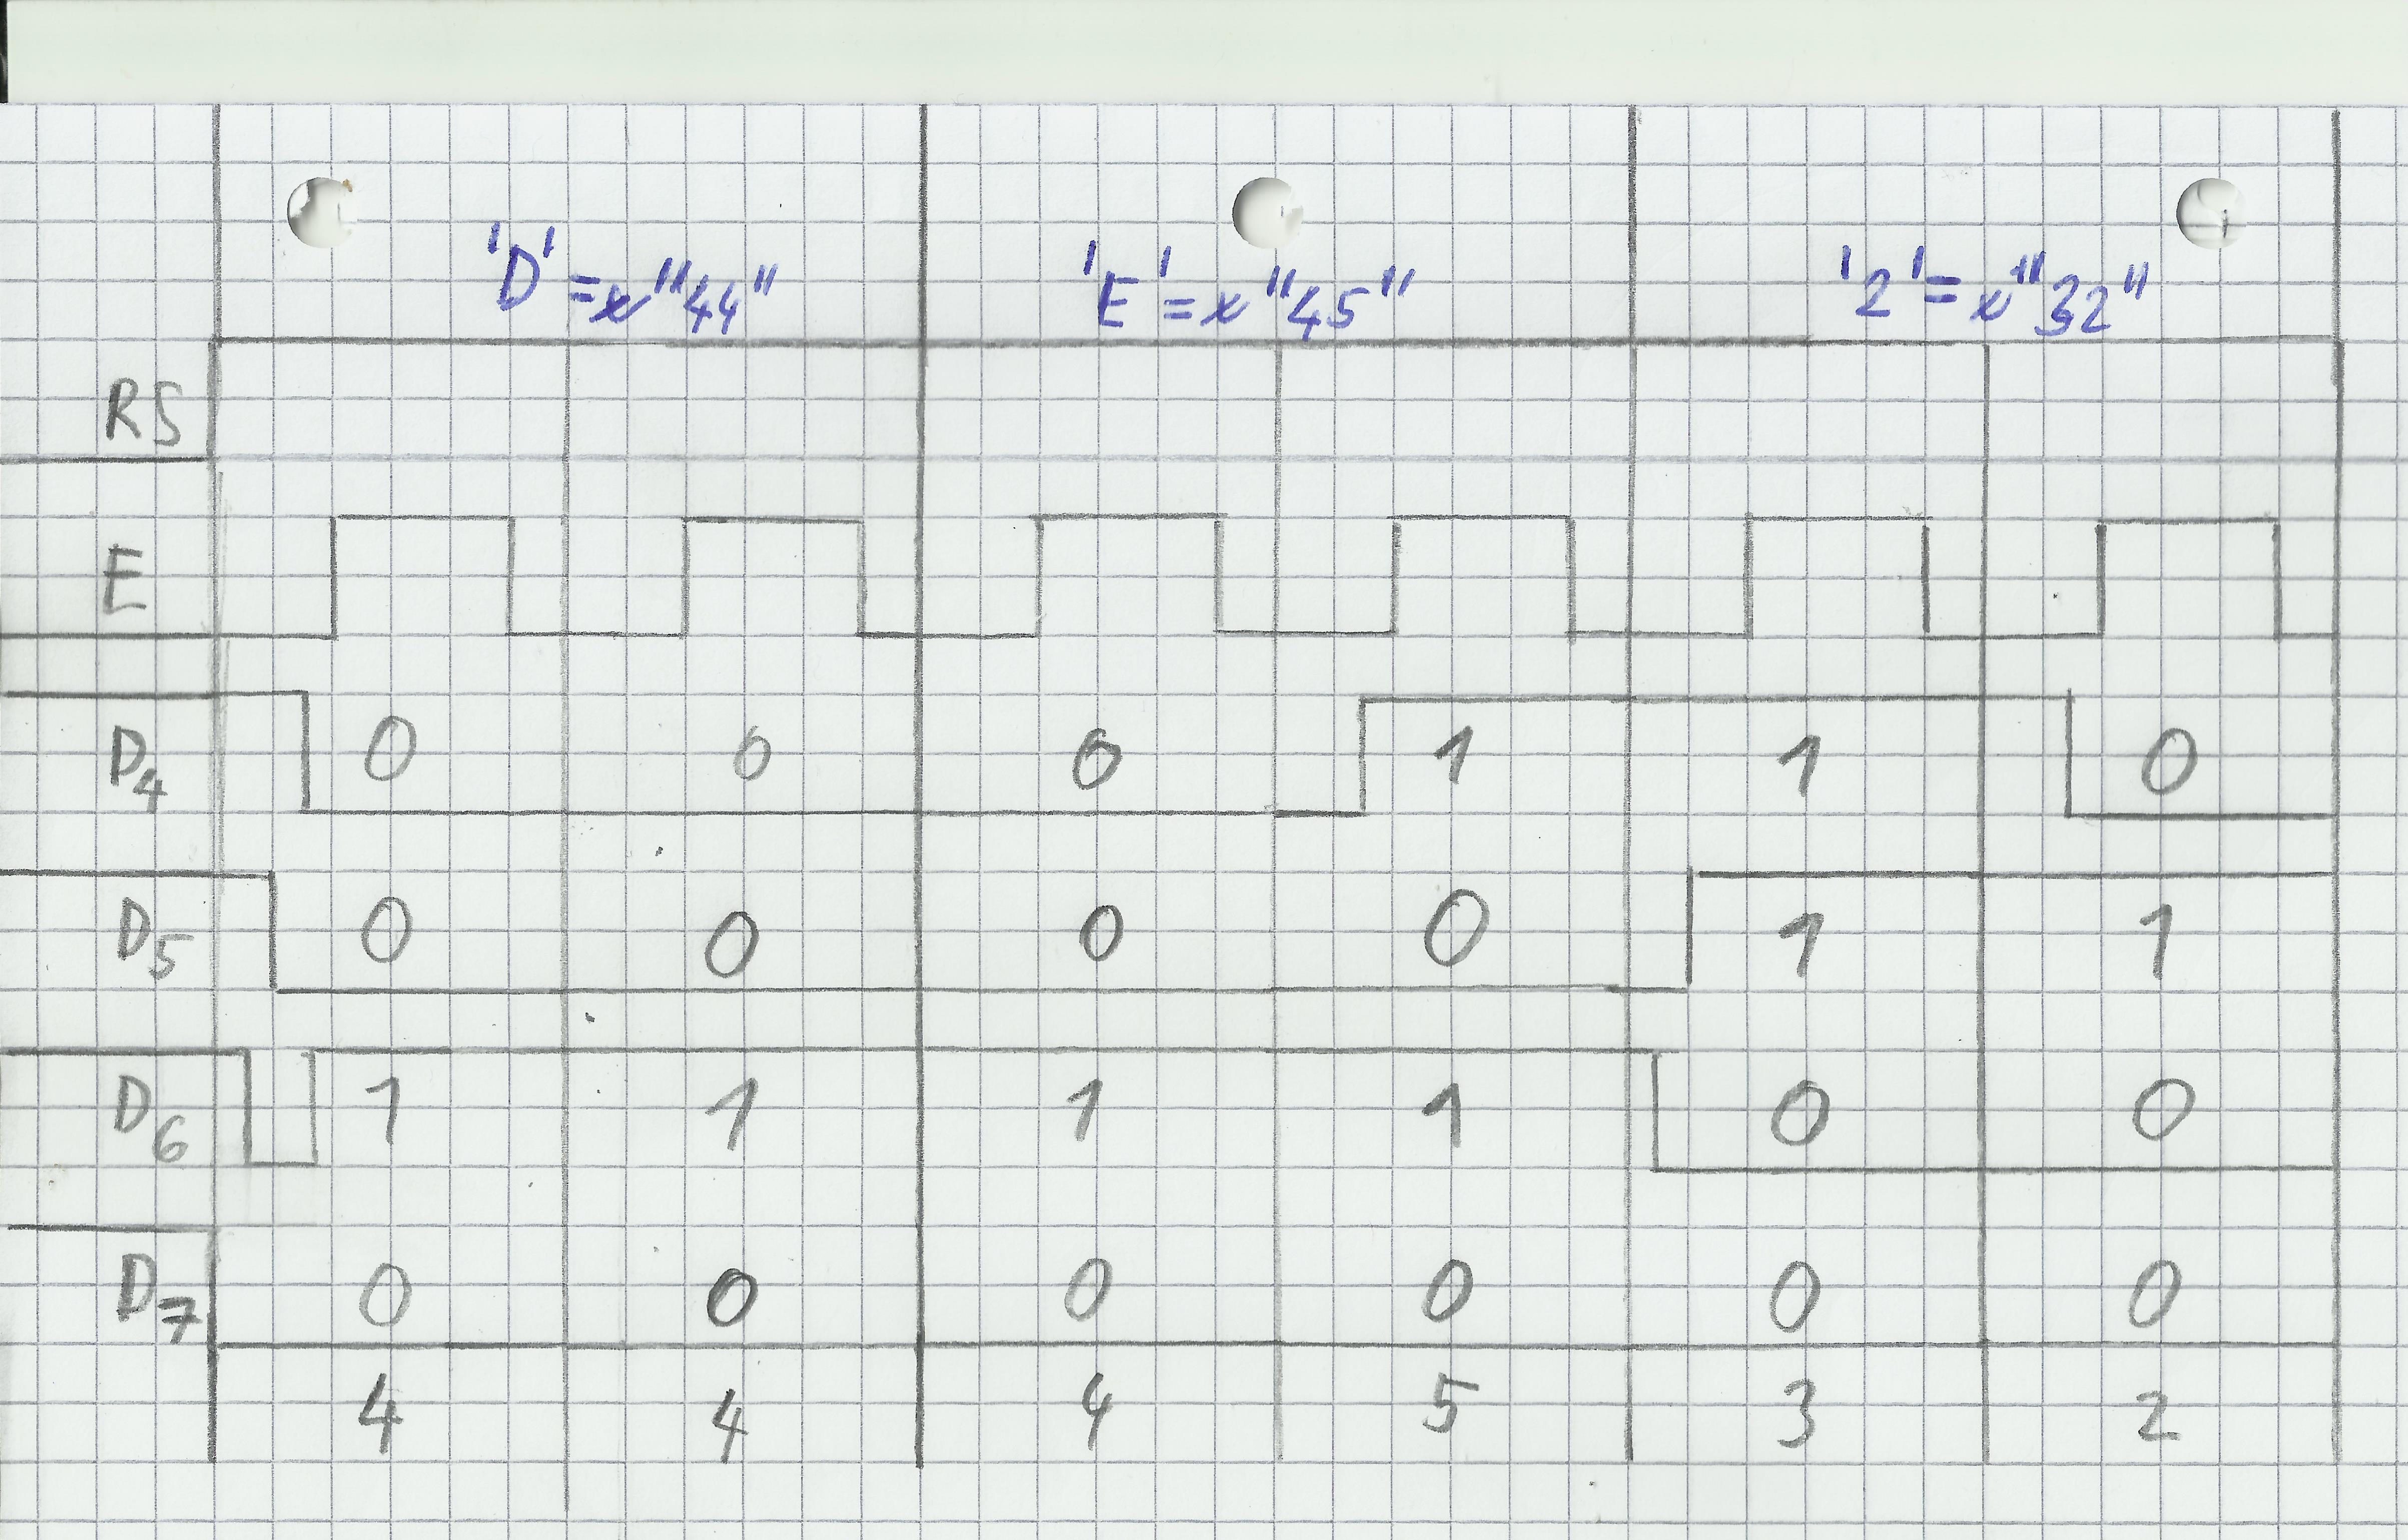 'D' = x"44" 'E' = x"45" '2' = x"32"
RS
E
D4 0 0 0 1 1 0
D5 0 0 0 0 1 1
D6 1 1 1 1 0 0
D7 0 0 0 0 0 0
4 4 4 5 3 2